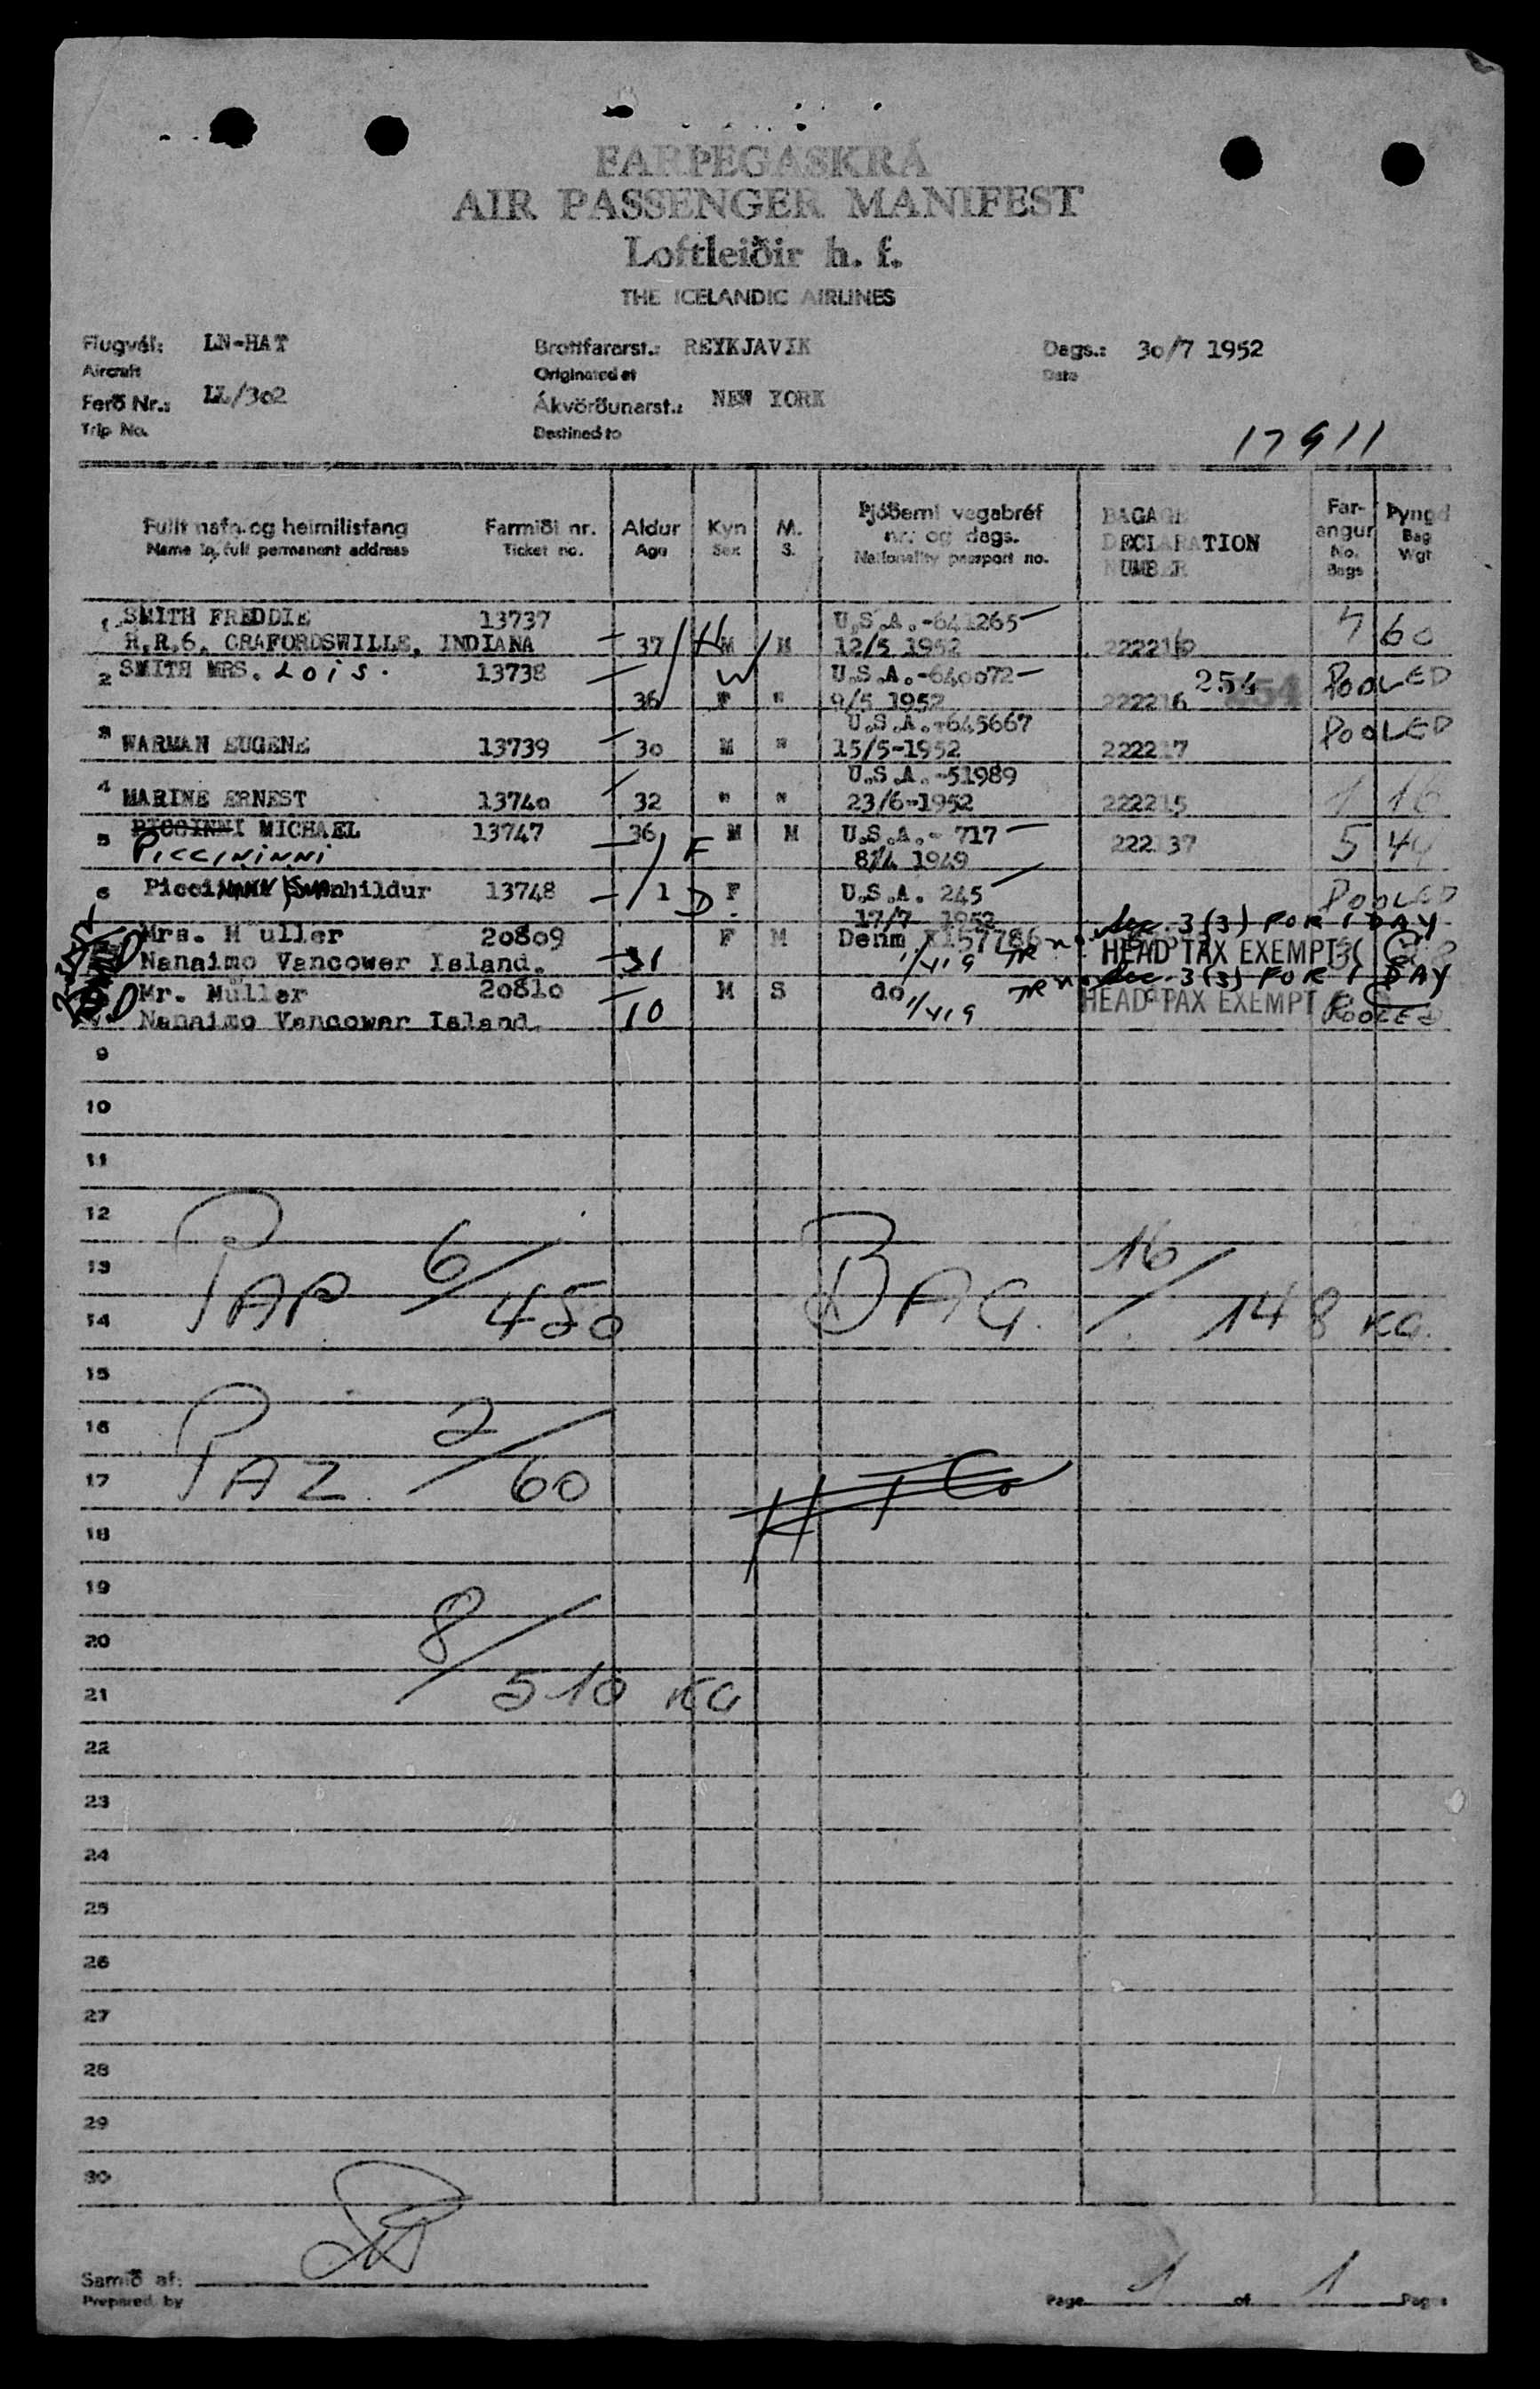 FARÞEGASKRÁ
AIR PASSENGER MANIFEST
Loftleiðir h. f.
THE ICELANDIC AIRLINES
Flugvél: LN-HAT Brottfararst.: REYKJAVIK Dags.: 30/7 1952
Aircraft Originated at Date
Ferð Nr.: LL/302 Ákvörðunarst.: NEW YORK
Trip No. Destined to
17911
Fullt nafn og heimilisfang Farmiði nr. Aldur Kyn M. Þjóðerni vegabréf BAGAGE Far- Þyngd
Name in full permanent address Ticket no. Age Sex S. nr. og dags. DECLARATION angur Bag
Nationality passport no. NUMBER No. Wgt
Bags
1 SMITH FREDDIE 13737 U.S.A.-641265
R.R.6. CRAFORDSWILLE, INDIANA 37 H M M 12/5 1952 7 60
2 SMITH MRS. Lois. 13738 W U.S.A.-640072 254 POOLED
36 F " 9/5 1952 222216 254
3 U.S.A.-645667 POOLED
WARMAN EUGENE 13739 30 M " 15/5-1952 222217
4 U.S.A.-51989
MARINE ERNEST 13740 32 " " 23/6-1952 222215 1 16
5 PICCINNI MICHAEL 13747 36 F M M U.S.A.- 717 222137 5 44
PICCININNI 1949
6 13748 1 D F U.S.A. 245 POOLED
17/7 1952
Mrs. Müller 20809 F M Denm Sec. 3(3) FOR 1 DAY
Nanaimo Vancower Island. 31 TR HEAD TAX EXEMPT 3
Mr. Müller 20810 M S do TR Sec. 3(3) FOR 1 DAY
Nanaimo Vancower Island. 10 HEAD TAX EXEMPT POOLED
9
10
11
12
13 PAP 6/450 BAG. 16/148 KG.
14
15
16
17 PAZ. 2/60
18
19
20 8/510 KG
21
22
23
24
25
26
27
28
29
30
Samið af:
Prepared by Page 1 of 1 Pages